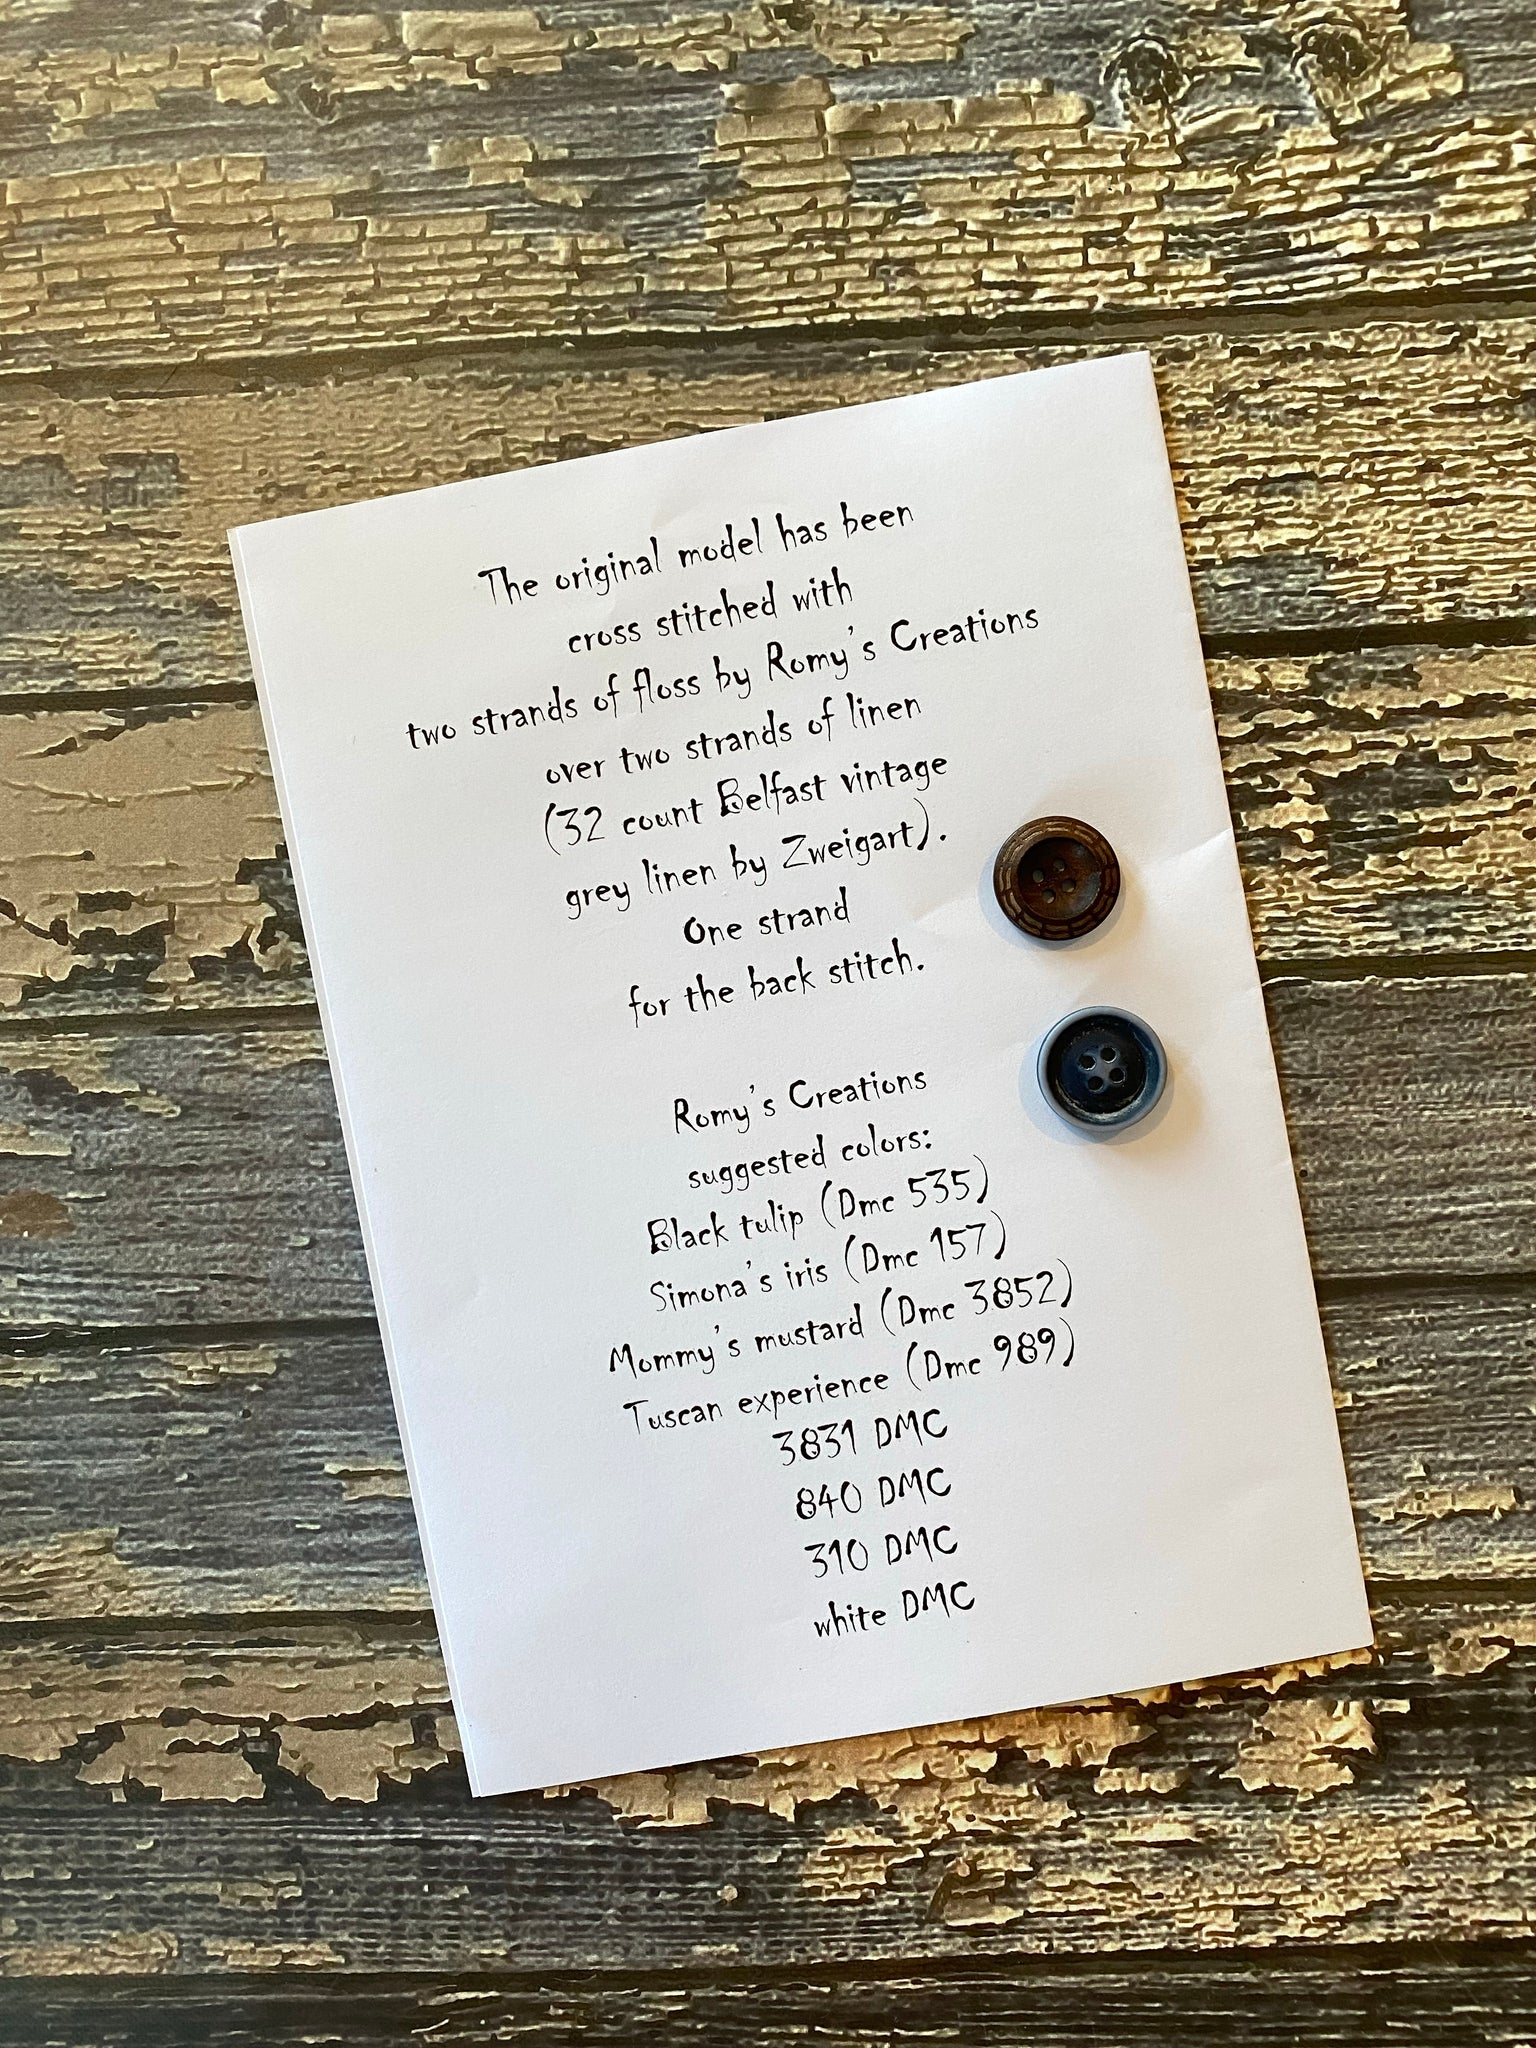 The original model has been
cross stitched with
two strands of floss by Romy's Creations
over two strands of linen
(32 count Belfast vintage
grey linen by Zweigart).
One strand
for the back stitch.
Romy's Creations
suggested colors:
Black tulip (Dmc 535)
Simona's iris (Dmc 157)
Mommy's mustard (Dmc 3852)
Tuscan experience (Dmc 989)
3831 DMC
840 DMC
310 DMC
white DMC